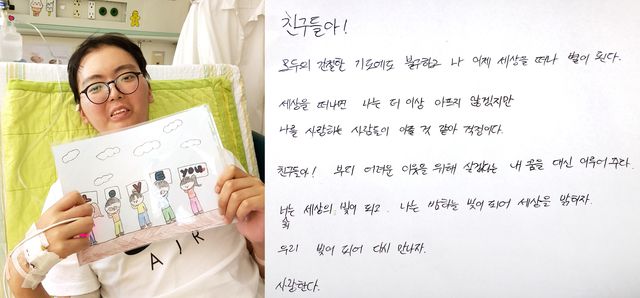 YOU
AIR
친구들아!
모두의 간절한 기도에도 불구하고 나 이제 세상을 떠나 별이 된다.
세상을 떠나면 나는 더 이상 아프지 않겠지만
나를 사랑하는 사람들이 아플 것 같아 걱정이다.
친구들아! 부디 어려운 이웃을 위해 살겠다는 내 꿈을 대신 이루어주라.
너는 세상의 빛이 되고, 나는 밤하늘 빛이 되어 세상을 밝히자.
우리 빛이 되어 다시 만나자.
사랑한다.